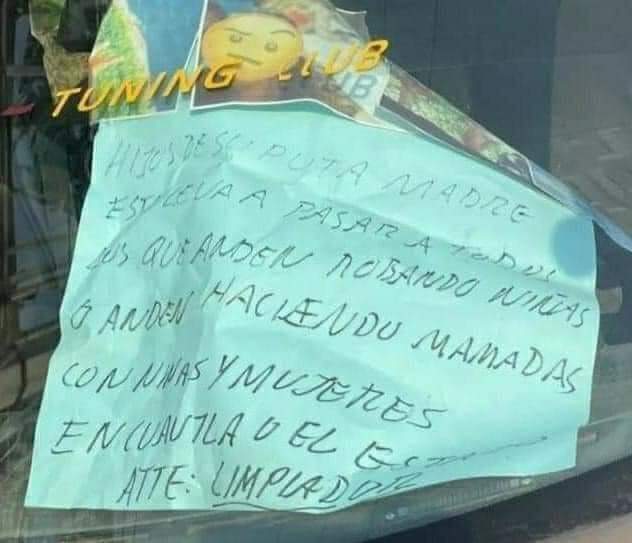 TUNING CLUB
UB
HIJOS DE SU PUTA MADRE
ESTO LEVA A PASAR A TODOS
LOS QUE ANDEN ROBANDO NIÑAS
O ANDEN HACIENDO MAMADAS
CON NIÑAS Y MUJERES
EN CUAUTLA O EL
ATTE: LIMPIADOR